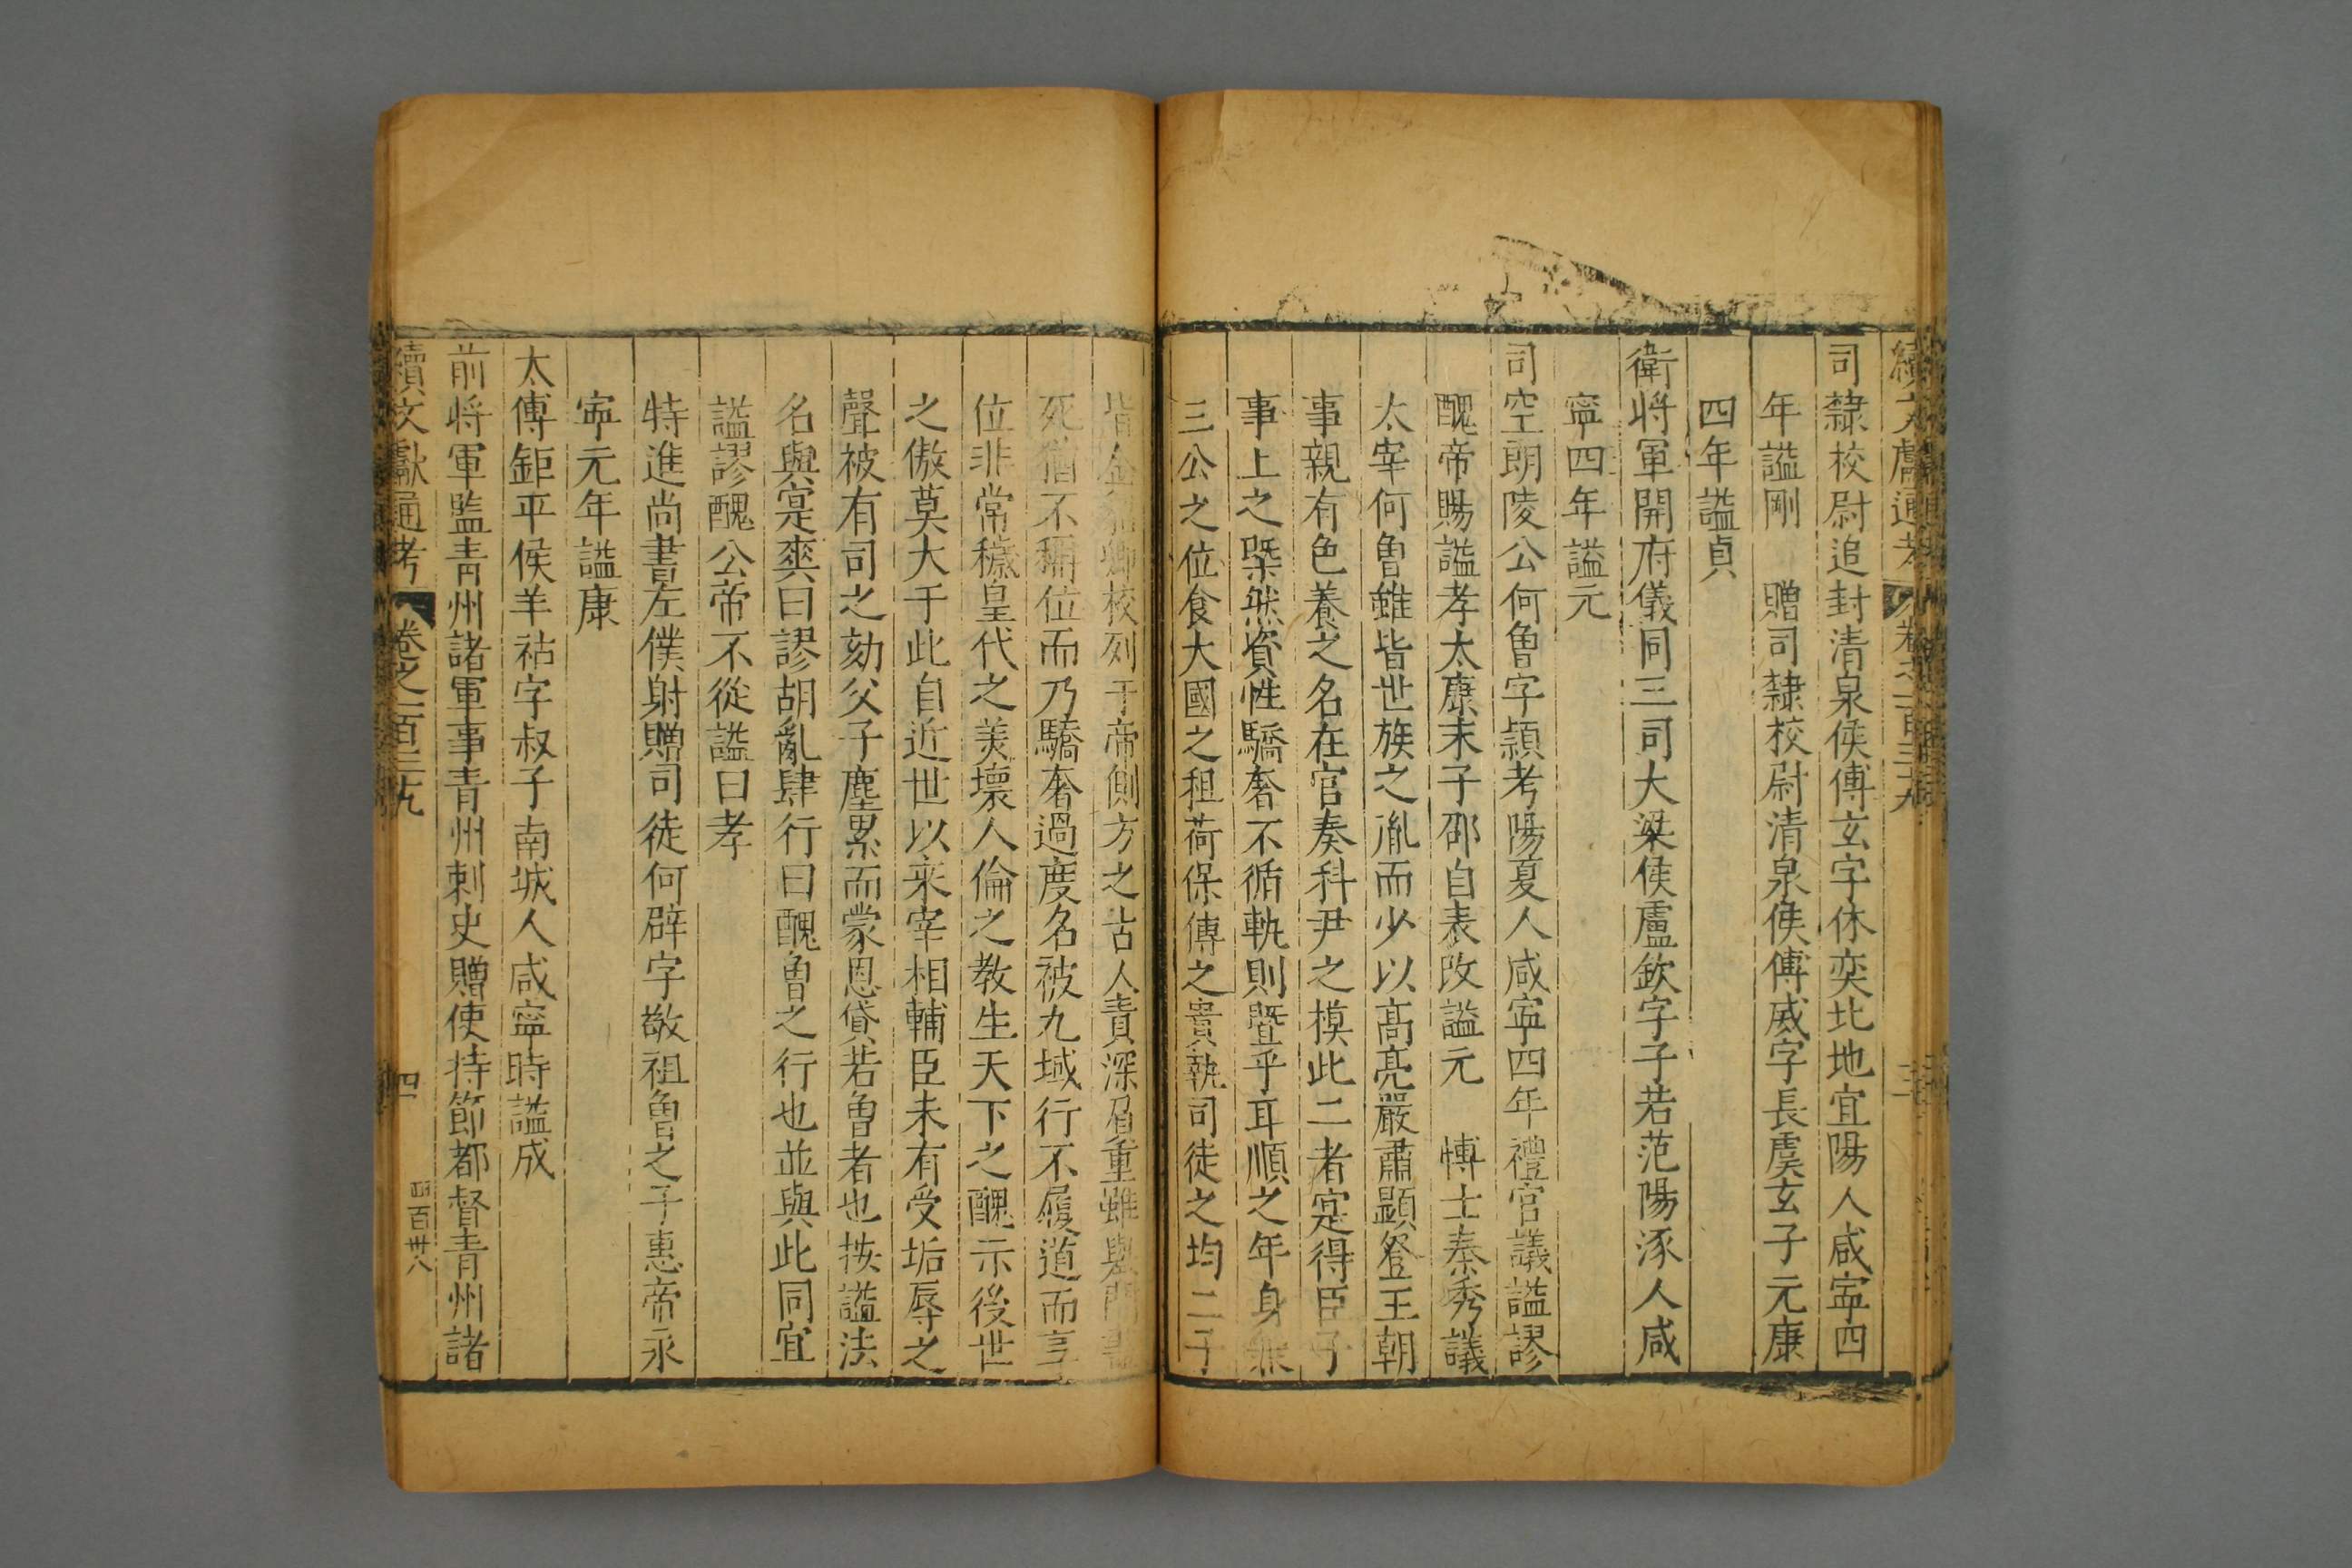 續文獻通考 卷之一百三十九 三
司隸校尉追封清泉侯傅玄字休奕北地宜陽人咸寧四
年謚剛 贈司隸校尉清泉侯傅咸字長虞玄子元康
四年謚貞
衛將軍開府儀同三司大梁侯盧欽字子若范陽涿人咸
寧四年謚元
司空朗陵公何曾字頴考陽夏人咸寧四年禮官議謚謬
醜帝賜謚孝太康末子邵自表改謚元 博士秦秀議
太宰何曾雖皆世族之胤而少以高亮嚴肅顯登王朝
事親有色養之名在官奏科尹之模此二者寔得臣子
事上之槩然資性驕奢不循軌則曁乎耳順之年身無
三公之位食大國之租荷保傅之貴執司徒之均二子
皆金 卿校列于帝側方之古人責深 重雖 門
死猶不稱位而乃驕奢過度名被九域行不履道而享
位非常穢皇代之美壞人倫之教生天下之醜示後世
之傲莫大于此自近世以来宰相輔臣未有受垢辱之
聲被有司之劾父子塵累而蒙恩貸若曾者也按謚法
名與寔爽曰謬胡亂肆行曰醜曾之行也並與此同宜
謚謬醜公帝不從謚曰孝
特進尚書左僕射贈司徒何劭字敬祖曾之子惠帝永
寧元年謚康
太傅鉅平侯羊祜字叔子南城人咸寧時謚成
前將軍監青州諸軍事青州刺史贈使持節都督青州諸
續文獻通考 卷之一百三十九 四 四百卅八